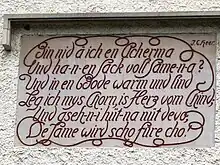 J.C. Heer.
Bin nid a ich en Acherma
Und ha-n-en Sack voll Same-n-a?
Und in en Bode warm und lind
Leg ich mys Chorn, is Herz vom Chind,
Und gseh-n-i hüt na nüt devo,
De Same wird scho füre cho!